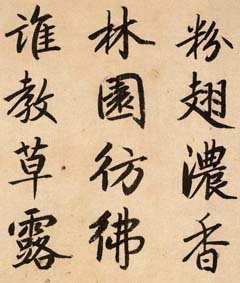 粉翅濃香
林園彷彿
誰教草露